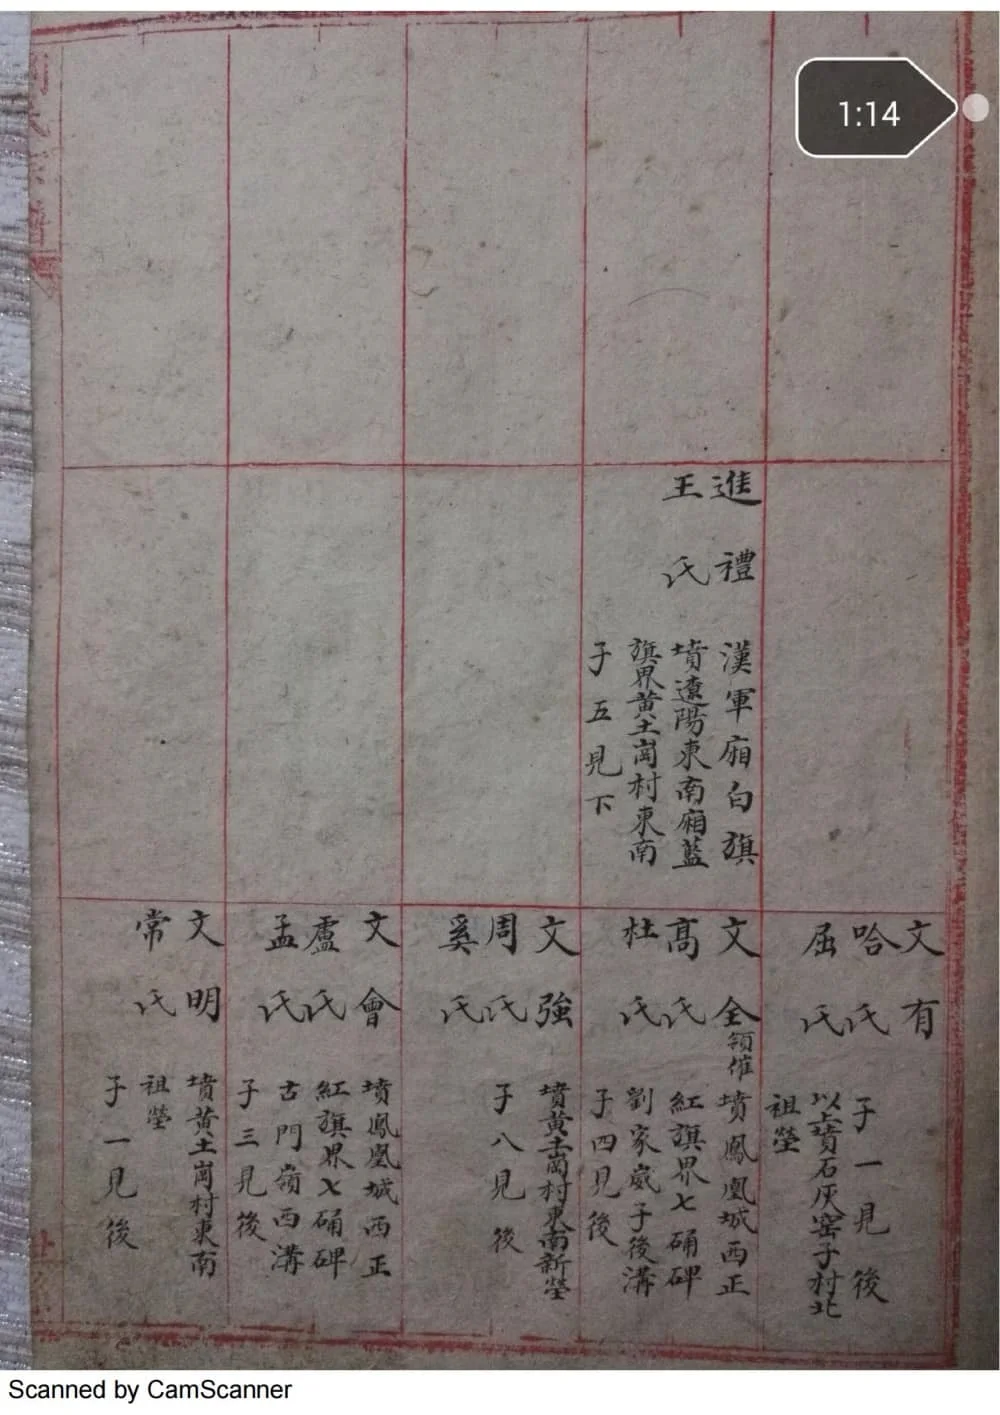 1:14
進禮
王氏
漢軍廂白旗
墳遼陽東南廂藍
旗界黃土崗村東南
子五見下
文有
哈氏
屈氏
子一見後
以上墳石灰窑子村北
祖塋
文全領催
高氏
杜氏
墳鳳凰城西正
紅旗界七硧碑
劉家崴子後溝
子四見後
文強
周氏
奚氏
墳黃土崗村東南新塋
子八見後
文會
盧氏
孟氏
墳鳳凰城西正
紅旗界七硧碑
古門嶺西溝
子三見後
文明
常氏
墳黃土崗村東南
祖塋
子一見後
Scanned by CamScanner